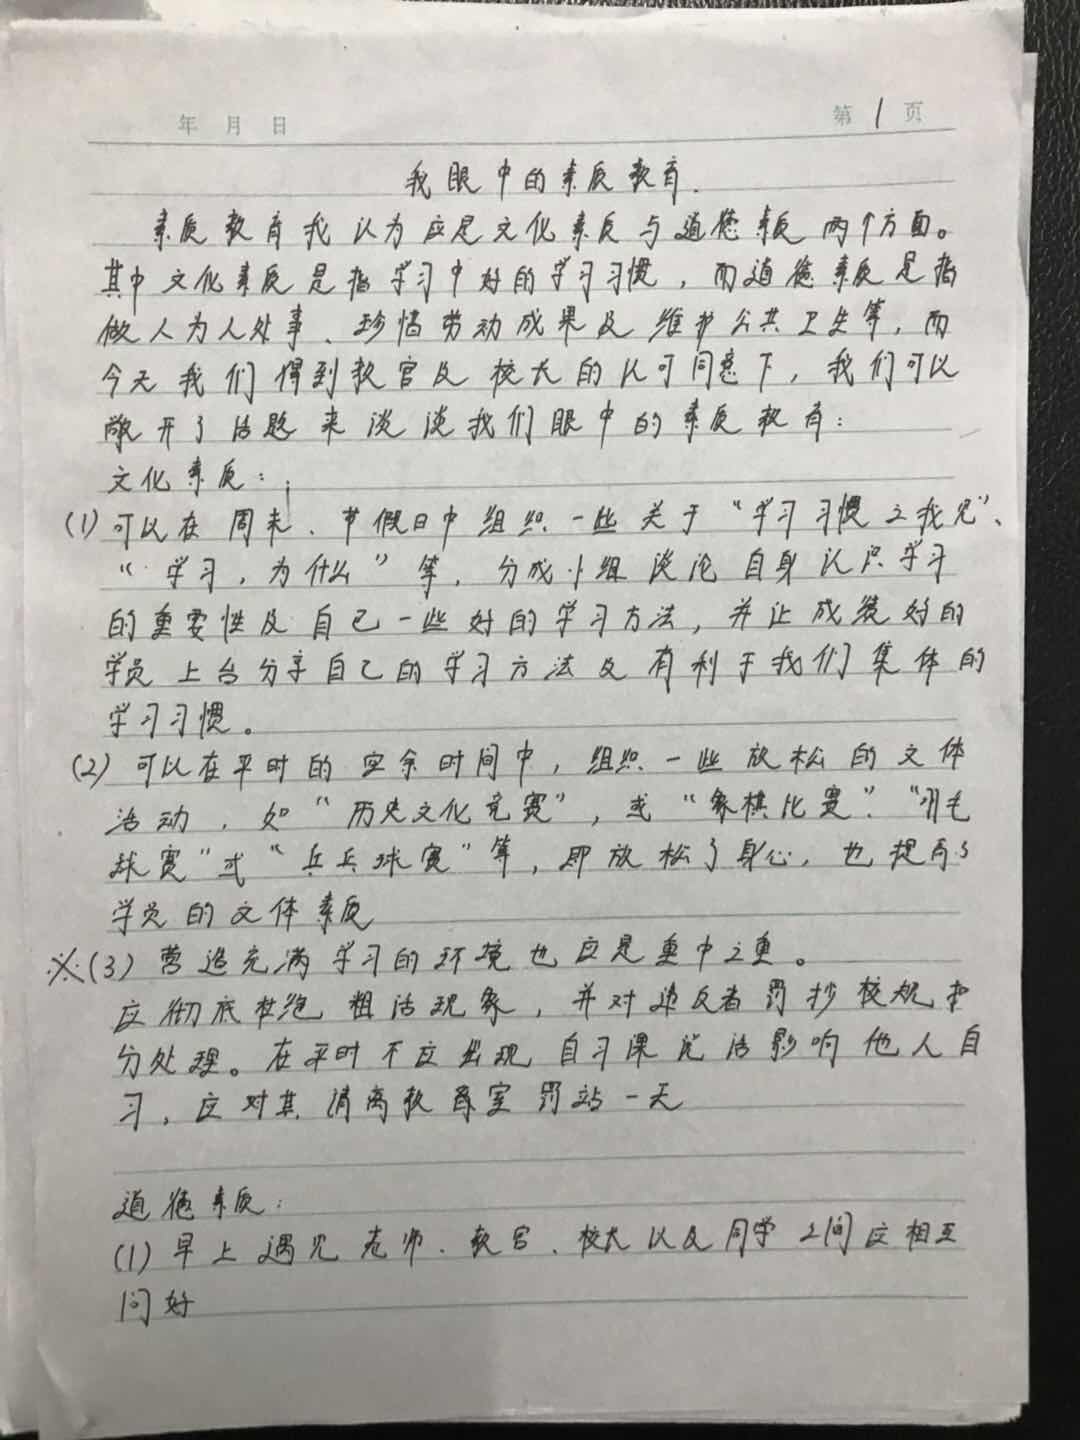 年 月 日
第 1 页
我眼中的素质教育.
素质教育我认为应是文化素质与道德素质两个方面。
其中文化素质是指学习中好的学习习惯，而道德素质是指
做人为人处事、珍惜劳动成果及维护公共卫生等，而
今天我们得到教官及校长的认可同意下，我们可以
敞开了话题来谈谈我们眼中的素质教育：
文化素质：
(1) 可以在周末、节假日中组织一些关于“学习习惯之我见”、
“学习，为什么”等，分成小组谈论自身认识学习
的重要性及自己一些好的学习方法，并让成绩好的
学员上台分享自己的学习方法及有利于我们集体的
学习习惯。
(2) 可以在平时的空余时间中，组织一些放松的文体
活动，如“历史文化竞赛”，或“象棋比赛”、“羽毛
球赛”或“乒乓球赛”等，即放松了身心，也提高了
学员的文体素质
※(3) 营造充满学习的环境也应是重中之重。
应彻底杜绝粗话现象，并对违反者罚抄校规扣
分处理。在平时不应出现自习课说话影响他人自
习，应对其请离教室罚站一天
道德素质：
(1) 早上遇见老师、教官、校长以及同学之间应相互
问好